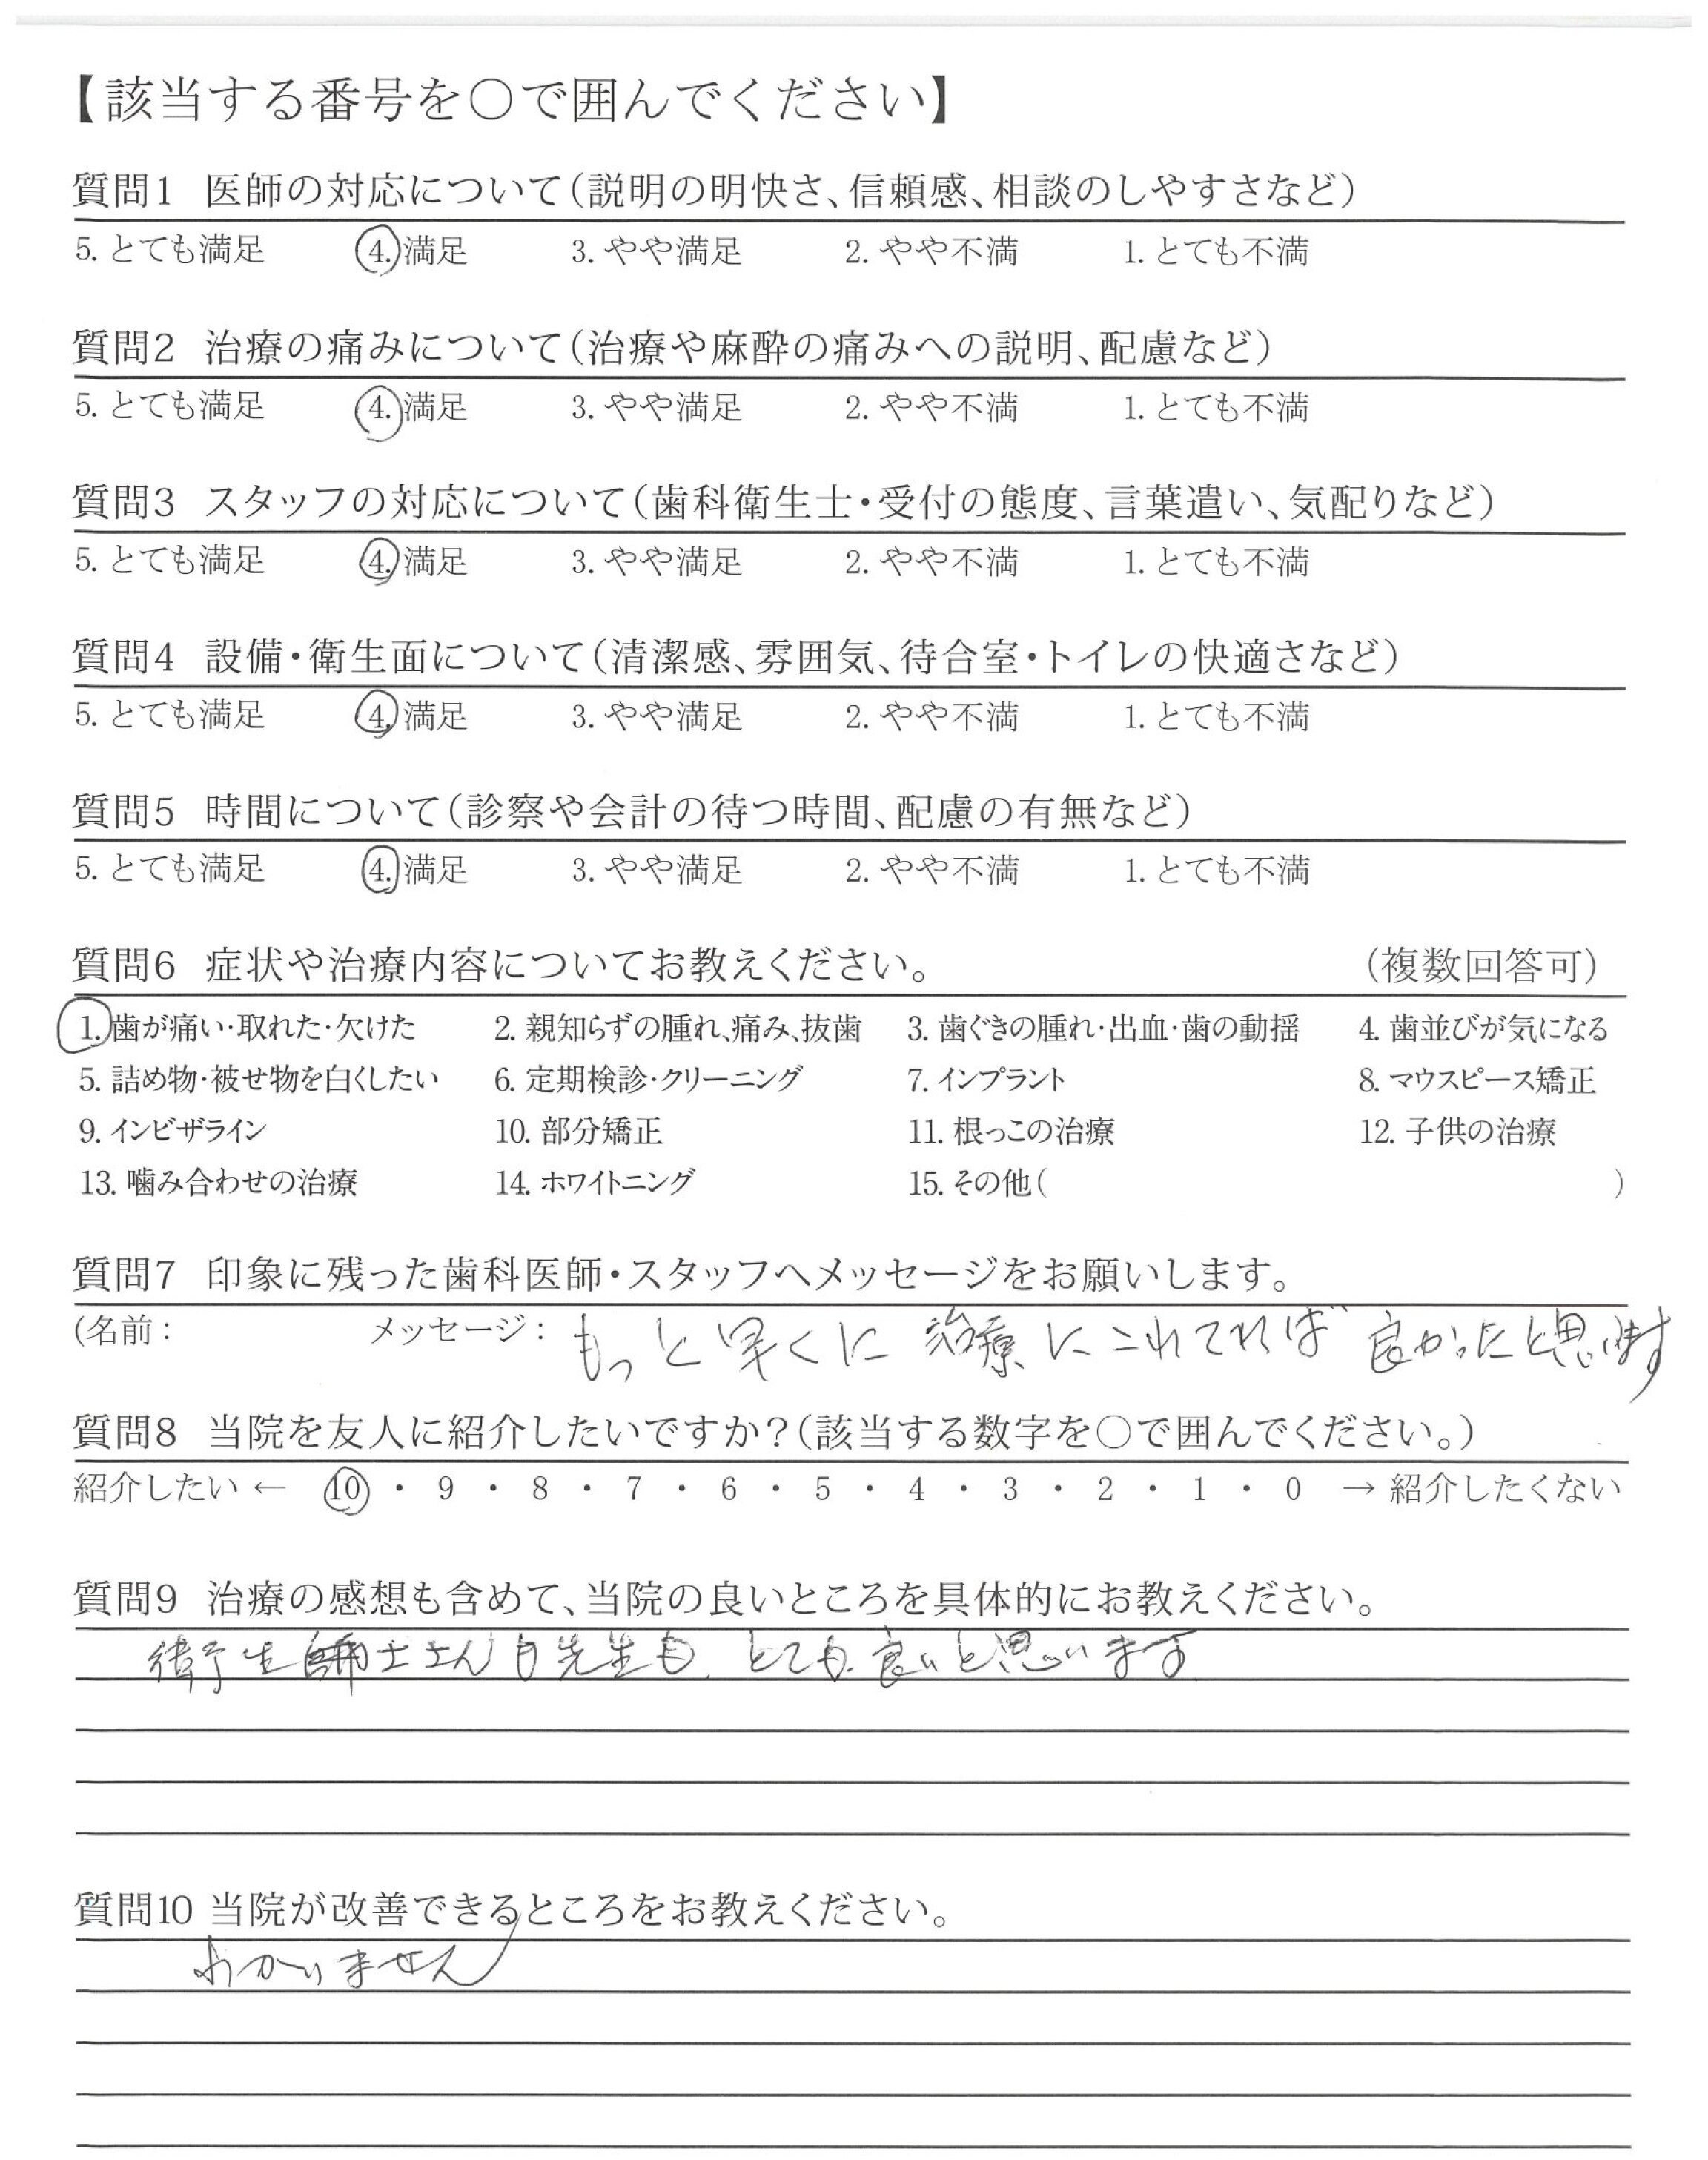 【該当する番号を○で囲んでください】
質問1 医師の対応について(説明の明快さ、信頼感、相談のしやすさなど)
5. とても満足 4. 満足 3. やや満足 2. やや不満 1. とても不満
質問2 治療の痛みについて(治療や麻酔の痛みへの説明、配慮など)
5. とても満足 4. 満足 3. やや満足 2. やや不満 1. とても不満
質問3 スタッフの対応について(歯科衛生士・受付の態度、言葉遣い、気配りなど)
5. とても満足 4. 満足 3. やや満足 2. やや不満 1. とても不満
質問4 設備・衛生面について(清潔感、雰囲気、待合室・トイレの快適さなど)
5. とても満足 4. 満足 3. やや満足 2. やや不満 1. とても不満
質問5 時間について(診察や会計の待つ時間、配慮の有無など)
5. とても満足 4. 満足 3. やや満足 2. やや不満 1. とても不満
質問6 症状や治療内容についてお教えください。 (複数回答可)
1. 歯が痛い・取れた・欠けた 2. 親知らずの腫れ、痛み、抜歯 3. 歯ぐきの腫れ・出血・歯の動揺 4. 歯並びが気になる
5. 詰め物・被せ物を白くしたい 6. 定期検診・クリーニング 7. インプラント 8. マウスピース矯正
9. インビザライン 10. 部分矯正 11. 根っこの治療 12. 子供の治療
13. 噛み合わせの治療 14. ホワイトニング 15. その他( )
質問7 印象に残った歯科医師・スタッフへメッセージをお願いします。
(名前: メッセージ: もっと早くに 治療にこれてれば 良かったと思います
質問8 当院を友人に紹介したいですか?(該当する数字を○で囲んでください。)
紹介したい ← 10 ・ 9 ・ 8 ・ 7 ・ 6 ・ 5 ・ 4 ・ 3 ・ 2 ・ 1 ・ 0 → 紹介したくない
質問9 治療の感想も含めて、当院の良いところを具体的にお教えください。
衛生士さんも先生も、とても良いと思います
質問10 当院が改善できるところをお教えください。
わかりません